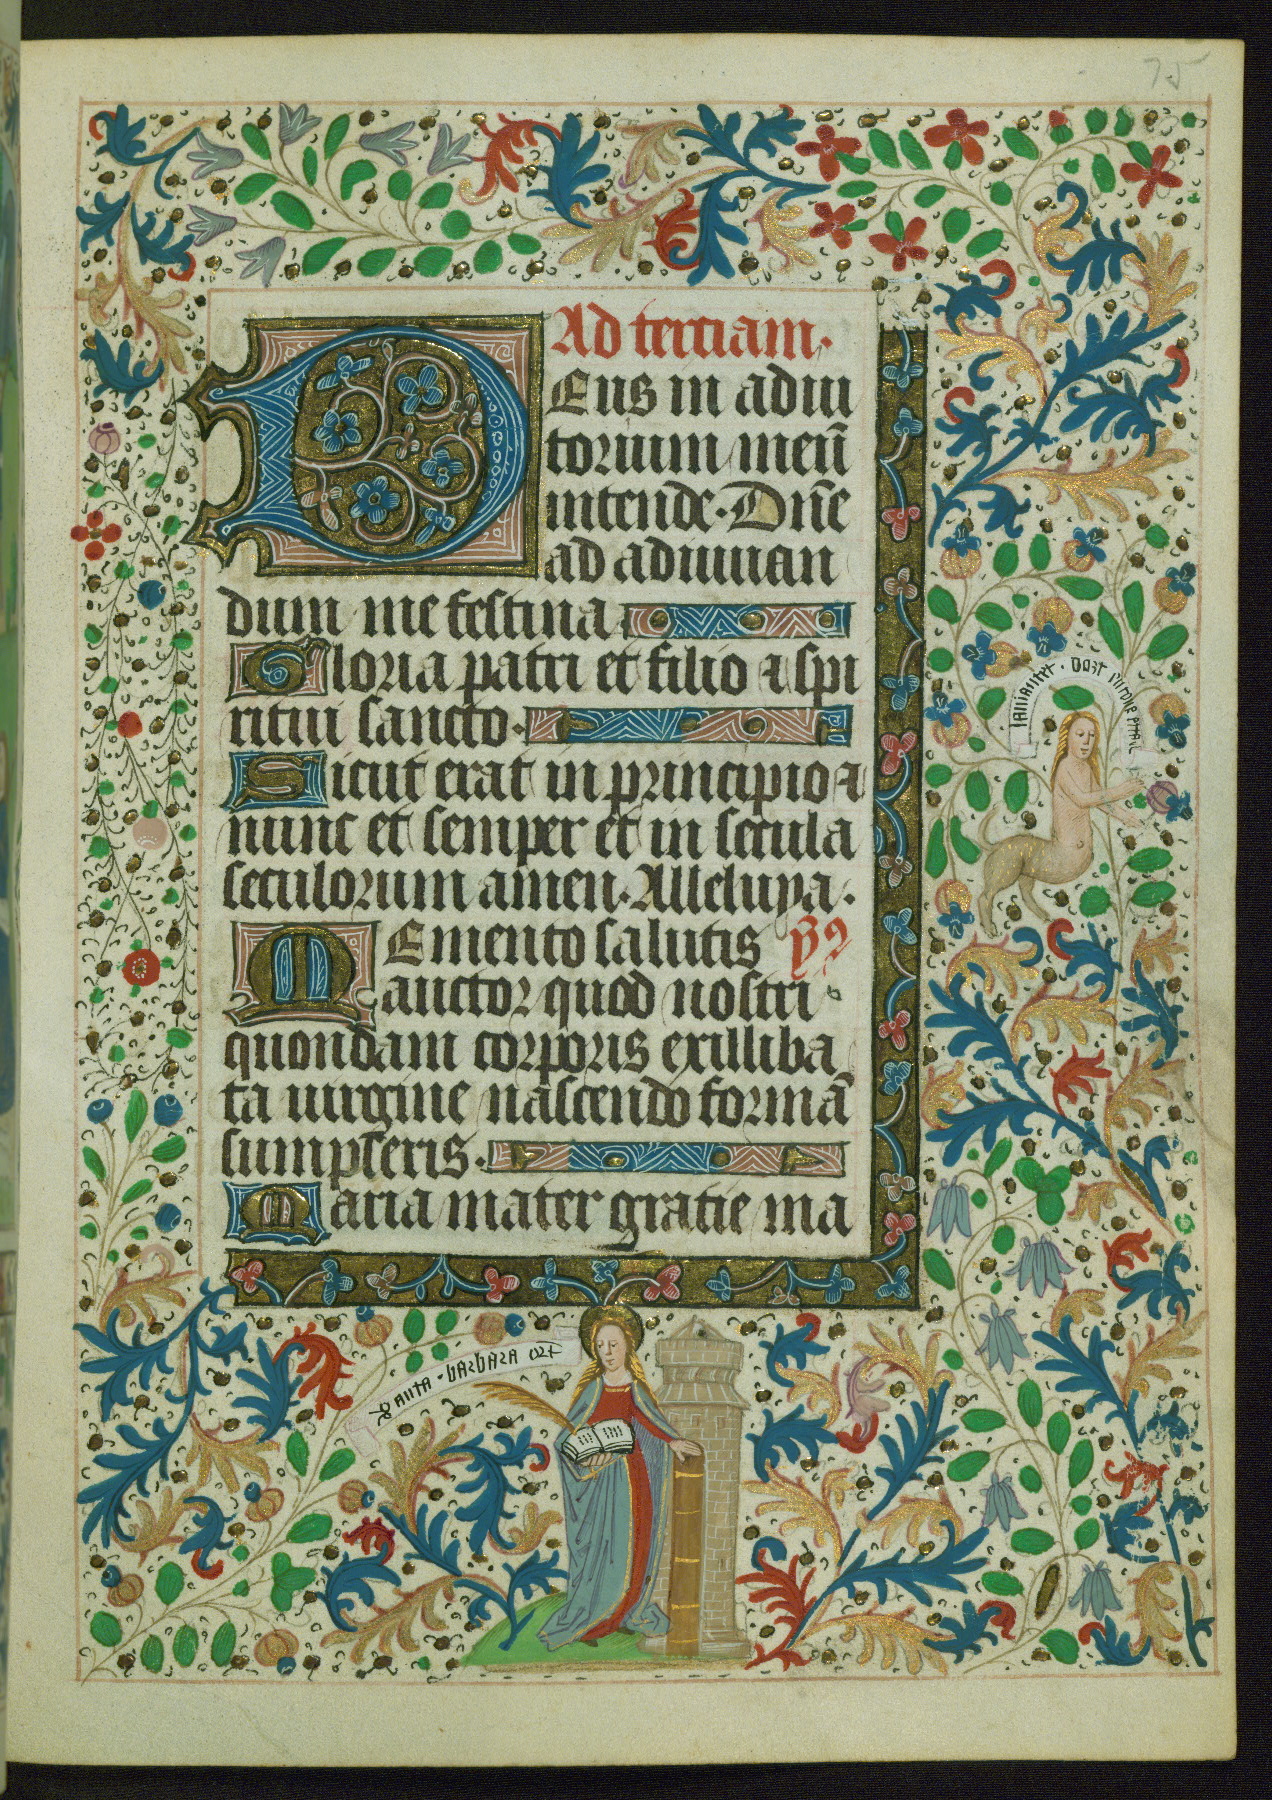 75
Ad tertiam.
Deus in adiu
torium meū
intende. Dn̄e
ad adiuuan
dum me festina
Gloria patri et filio ⁊ spi
ritui sancto.
Sicut erat in principio ⁊
nunc et semper et in secula
seculorum amen. Alleluya.
Memento salutis ỹꝯ
auctor quod nostri
quondam corporis exilliba
ta uirgine nascendo formā
sumpseris.
Maria mater gratie ma
Santa. barbara